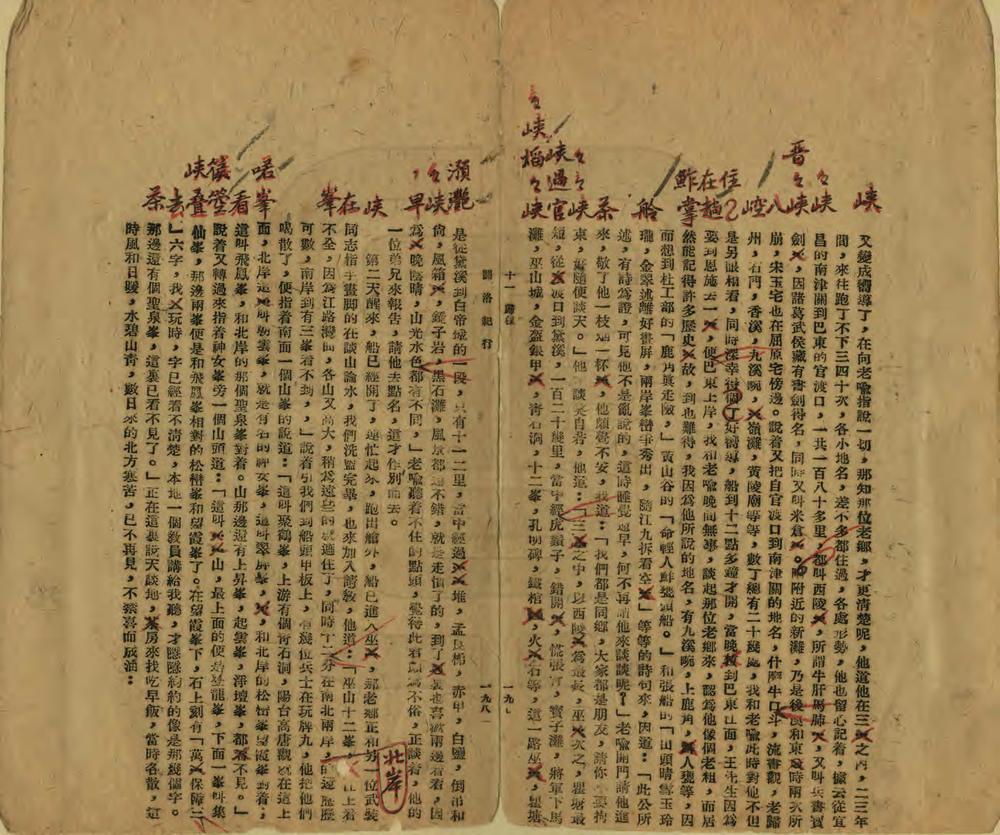 峽
又變成嚮導了，在向老喩指說一切，那知那位老鄉，才更清楚呢，他道他在三之內，二三年
間，來往跑了不下三四十次，各小地名，差不多都住過，各處形勢，他也留心記着，據云從宜
峽 々
昌的南津關到巴東的官渡口，一共一百八十多里，都叫西陵，所謂牛肝馬肺，又叫兵書寶
晉 々 峽
劍，因諸葛武侯藏有書劍得名，同時又叫米倉。附近的新灘，乃是後和東時兩次所
八
崩，宋玉宅也在屈原宅傍邊。說着又把自官渡口到南津關的地名，什麼牛口斗，流書觀，老歸
崆
州，石門，香溪，九溪碗，嶺灘，黃陵廟等等，數了總有二十幾處，我和老喩此時對他不但
是另眼相看，同時深幸得個了好嚮導，船到十二點多鐘才開，當晚到巴東江面，王先生因爲
住 在 趟
要到恩施去一，便巴東上岸，我和老喩晚間無事，談起那位老鄉來，認爲他像個老粗，而居
鮓 掌
然能記得許多歷史故，到也難得，我因爲他所說的地名，有九溪碗，上鹿角，人甕等，因
而想到杜工部的「鹿角眞走險，」黃山谷的「命輕人鮓甕頭船。」和張船的「田頭晴雪玉玲
舲
瓏，金翠遮離好畫屏，兩岸峯巒爭秀出，隨江九拆看空」等等的詩句來，因道：「此公所
述，有詩爲證，可見他不是亂說的，這時睡覺還早，何不再請他來談談呢？」老喩開門請他進
茶
來，敬了他一枝烟一怀，他頗覺不安，我道：「我們都是同鄉，大家都是朋友，請你不要拘
峽 々 々
束，好隨便談天。」他談笑自若，他道：「三之中，以西陵爲最長，巫次之，瞿塘最
官 過 峽
短，從渡口到黛溪，一百二十幾里，當中經虎鬚子，錯開，慌張背，寶子灘，將軍下馬
峽 々 稻 峽 々
灘，巫山城，金盔銀甲，靑石洞，十二峯，孔明碑，鐵棺，火石等，這一路巫，瞿塘
十一 歸程
一九
關洛紀行
一九八
灔 澦
是從黛溪到白帝城的一段，只有十一二里，當中經過堆，孟良梯，赤甲，白鹽，倒吊和
峽 々
尙，風箱，鏡子岩，黑石灘，風景都還不錯，就是走慣了的，到了裏也喜歡兩邊看看，因
早 ，
爲晚陰晴，山光水色都有不同，」老喩聽着不住的點頭，覺得此君談爲不俗，正談着，他的
一位弟兄來報告，請他去點名，這才作別而去。
峽
第二天醒來，船已經開了，連忙起來，跑出艙外，船已進入巫，那老鄉正和另一位武裝
在
同志指手畫脚的在談山論水，我們洗盥完畢，也來加入諮敎，他道：「巫山十二峯，江上看
峯
不全，因爲江路灣曲，各山又高大，稍爲遠些的就遮住了，同時十二分在南北兩岸，的還歷歷
北岸
可數，南岸到有三峯看不到，」說着引我們到船頭甲板上，有幾位兵士在玩牌九，他把他們
喝散了，便指着南面一個山峯的說道：「這叫聚鶴峯，上游有個靑石洞，陽台高唐觀就在這上
峯 喏
面，北岸這叫朝雲峯，就是有名的神女峯，這叫翠屛峯，，和北岸的松巒峯望霞峯對着，
看
這叫飛鳳峯，和北岸的那個聖泉峯對着。山那邊還有上昇峯，起雲峯，淨壇峯，都看不見。」
說着又轉過來指着神女峯旁一個山頭道：「這叫山，最上面的便是登龍峯，下面一峯叫集
疊 峽
仙峯，那邊兩峯便是和飛鳳峯相對的松巒峯和望霞峯了。在望霞峯下，石上刻有「萬保障三
去
」六字，我玩時，字已經看不清楚，本地一個敎員講給我聽，才隱隱約約的像是那幾個字。
茶
那邊還有個聖泉峯，這裏已看不見了。」正在這裏說天談地，茶房來找吃早飯，當時各散，這
時風和日暖，水碧山靑，數日來的北方寒苦，已不再見，不禁喜而成涌：